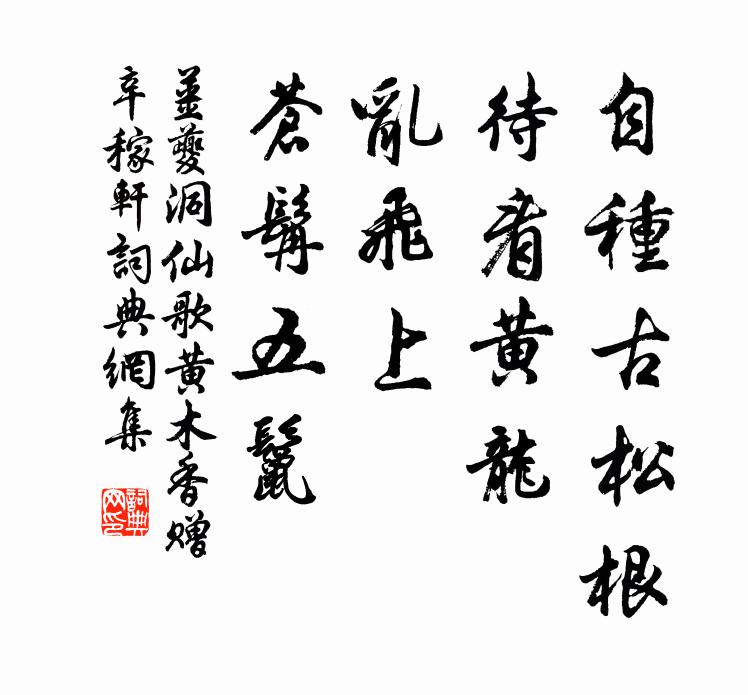 自種古松根
待看黃龍
亂飛上
蒼髯五鬣
姜夔洞仙歌黃木香贈
辛稼軒詞典網集
詞典網印